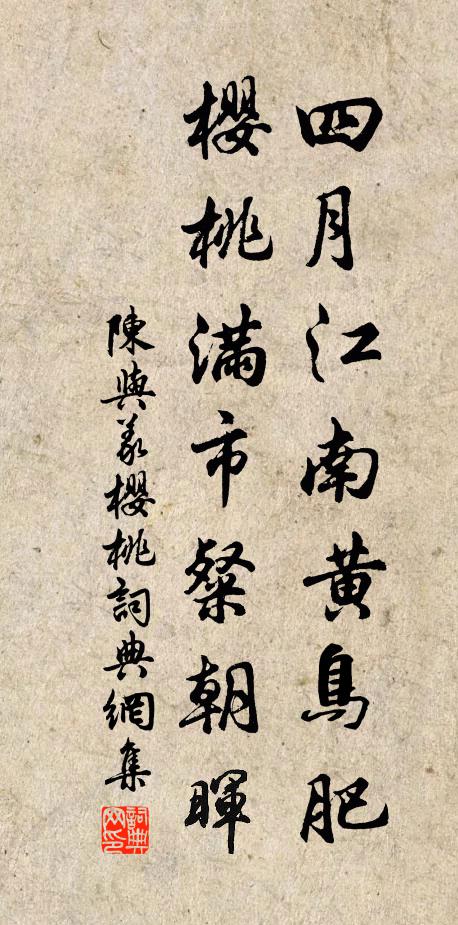 四月江南黃鳥肥
櫻桃滿市粲朝暉
陳與義櫻桃詞典網集
詞典
网印